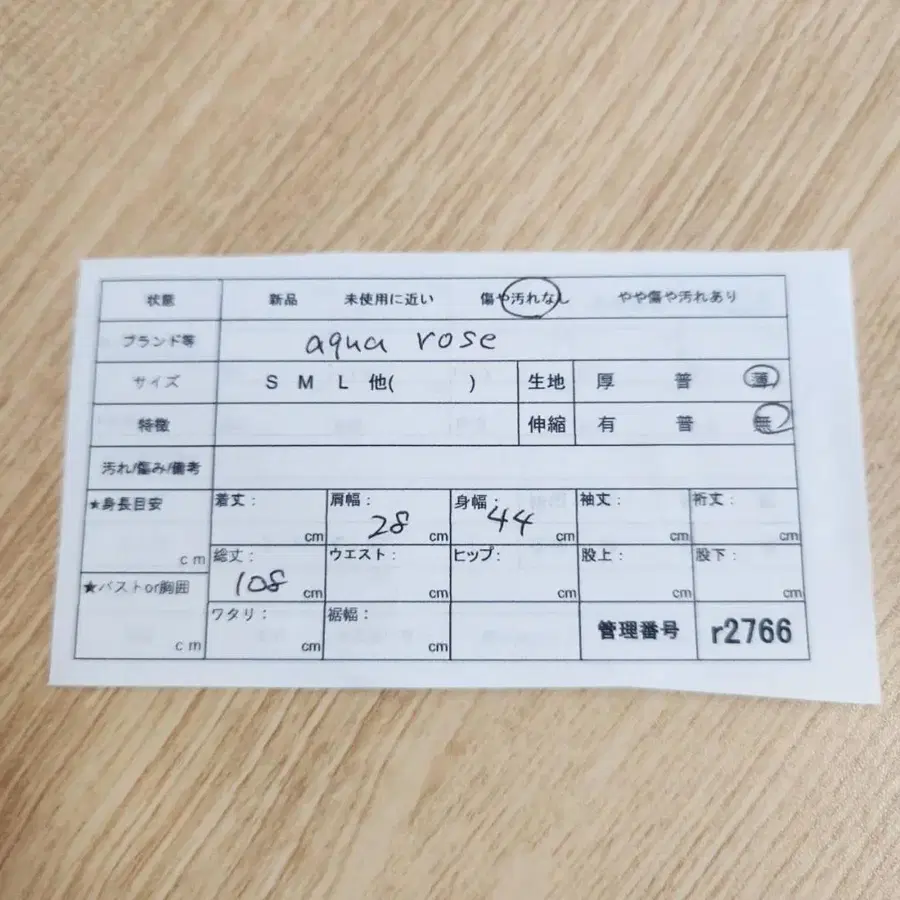 状態 新品 未使用に近い 傷や汚れなし やや傷や汚れあり
ブランド等 aqua rose
サイズ S M L 他( ) 生地 厚 普 薄
特徴 伸縮 有 普 無
汚れ/傷み/備考
★身長目安 cm 着丈: cm 肩幅: 28 cm 身幅: 44 cm 袖丈: cm 裄丈: cm
★バストor胸囲 cm 総丈: 108 cm ウエスト: cm ヒップ: cm 股上: cm 股下: cm
ワタリ: cm 裾幅: cm 管理番号 r2766